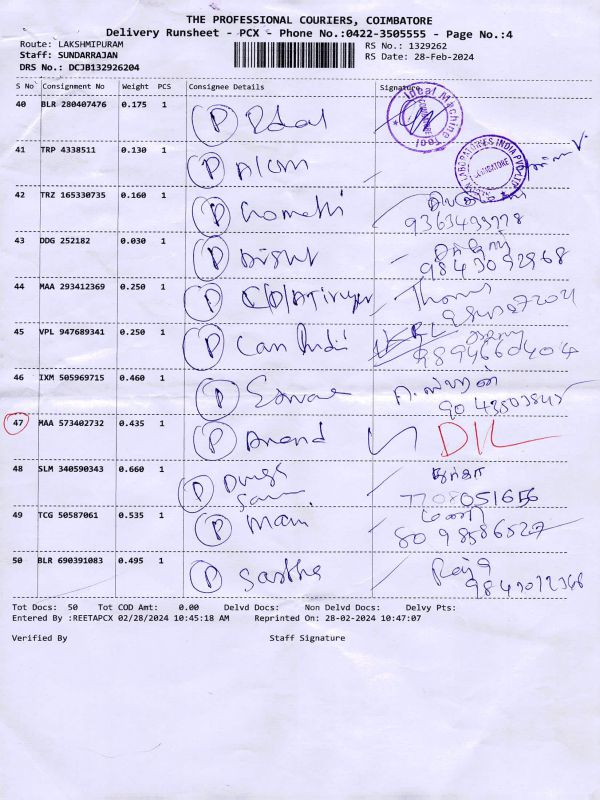 THE PROFESSIONAL COURIERS, COIMBATORE
Delivery Runsheet - PCX - Phone No.:0422-3505555 - Page No.:4
Route: LAKSHMIPURAM RS No.: 1329262
Staff: SUNDARRAJAN RS Date: 28-Feb-2024
DRS No.: DCJB132926204
S No Consignment No Weight PCS Consignee Details Signature
40 BLR 280407476 0.175 1 P
Ideal Machine Tool
41 TRP 4338511 0.130 1 P
LABORATORIES INDIA PVT LTD
COIMBATORE
42 TRZ 165330735 0.160 1 P Gomathi
43 DDG 252182 0.030 1 P
9843092968
44 MAA 293412369 0.250 1 P
45 VPL 947689341 0.250 1 P Can Indii
9894660404
46 IXM 505969715 0.460 1 P
9043503845
47 MAA 573402732 0.435 1 P Anand DIL
48 SLM 340590343 0.660 1 P Durga
7708051656
49 TCG 50587061 0.535 1 P Mani மணி
8098586527
50 BLR 690391083 0.495 1 P Sastha Raja
Tot Docs: 50 Tot COD Amt: 0.00 Delvd Docs: Non Delvd Docs: Delvy Pts:
Entered By :REETAPCX 02/28/2024 10:45:18 AM Reprinted On: 28-02-2024 10:47:07
Verified By Staff Signature